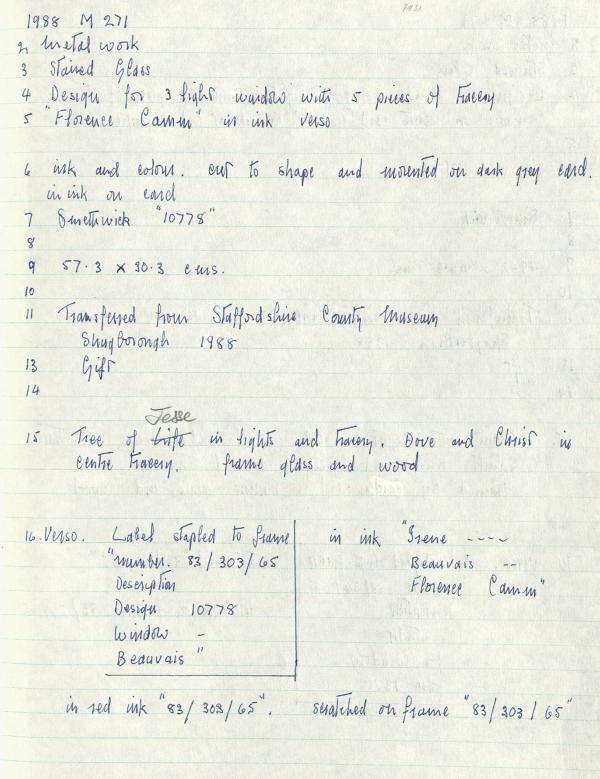 1988 M 271
2 Metal work
3 Stained Glass
4 "Design for 3 light window" with 5 pieces of tracery
5 "Florence Camm" in ink verso
6 ink and colour. cut to shape and mounted on dark grey card.
in ink on card
7 Smethwick "10778"
8
9 57.3 x 30.3 cms.
10
11 Transferred from Staffordshire County Museum
Shugborough 1988
13 Gift
14
Jesse
15 Tree of Life in lights and tracery. Dove and Christ in
centre tracery. frame glass and wood
16. Verso. Label stapled to frame
"number. 83/303/65
Description
Design 10778
Window –
Beauvais"
in ink "Irene ----
Beauvais --
Florence Camm"
in red ink "83/303/65". scratched on frame "83/303/65"